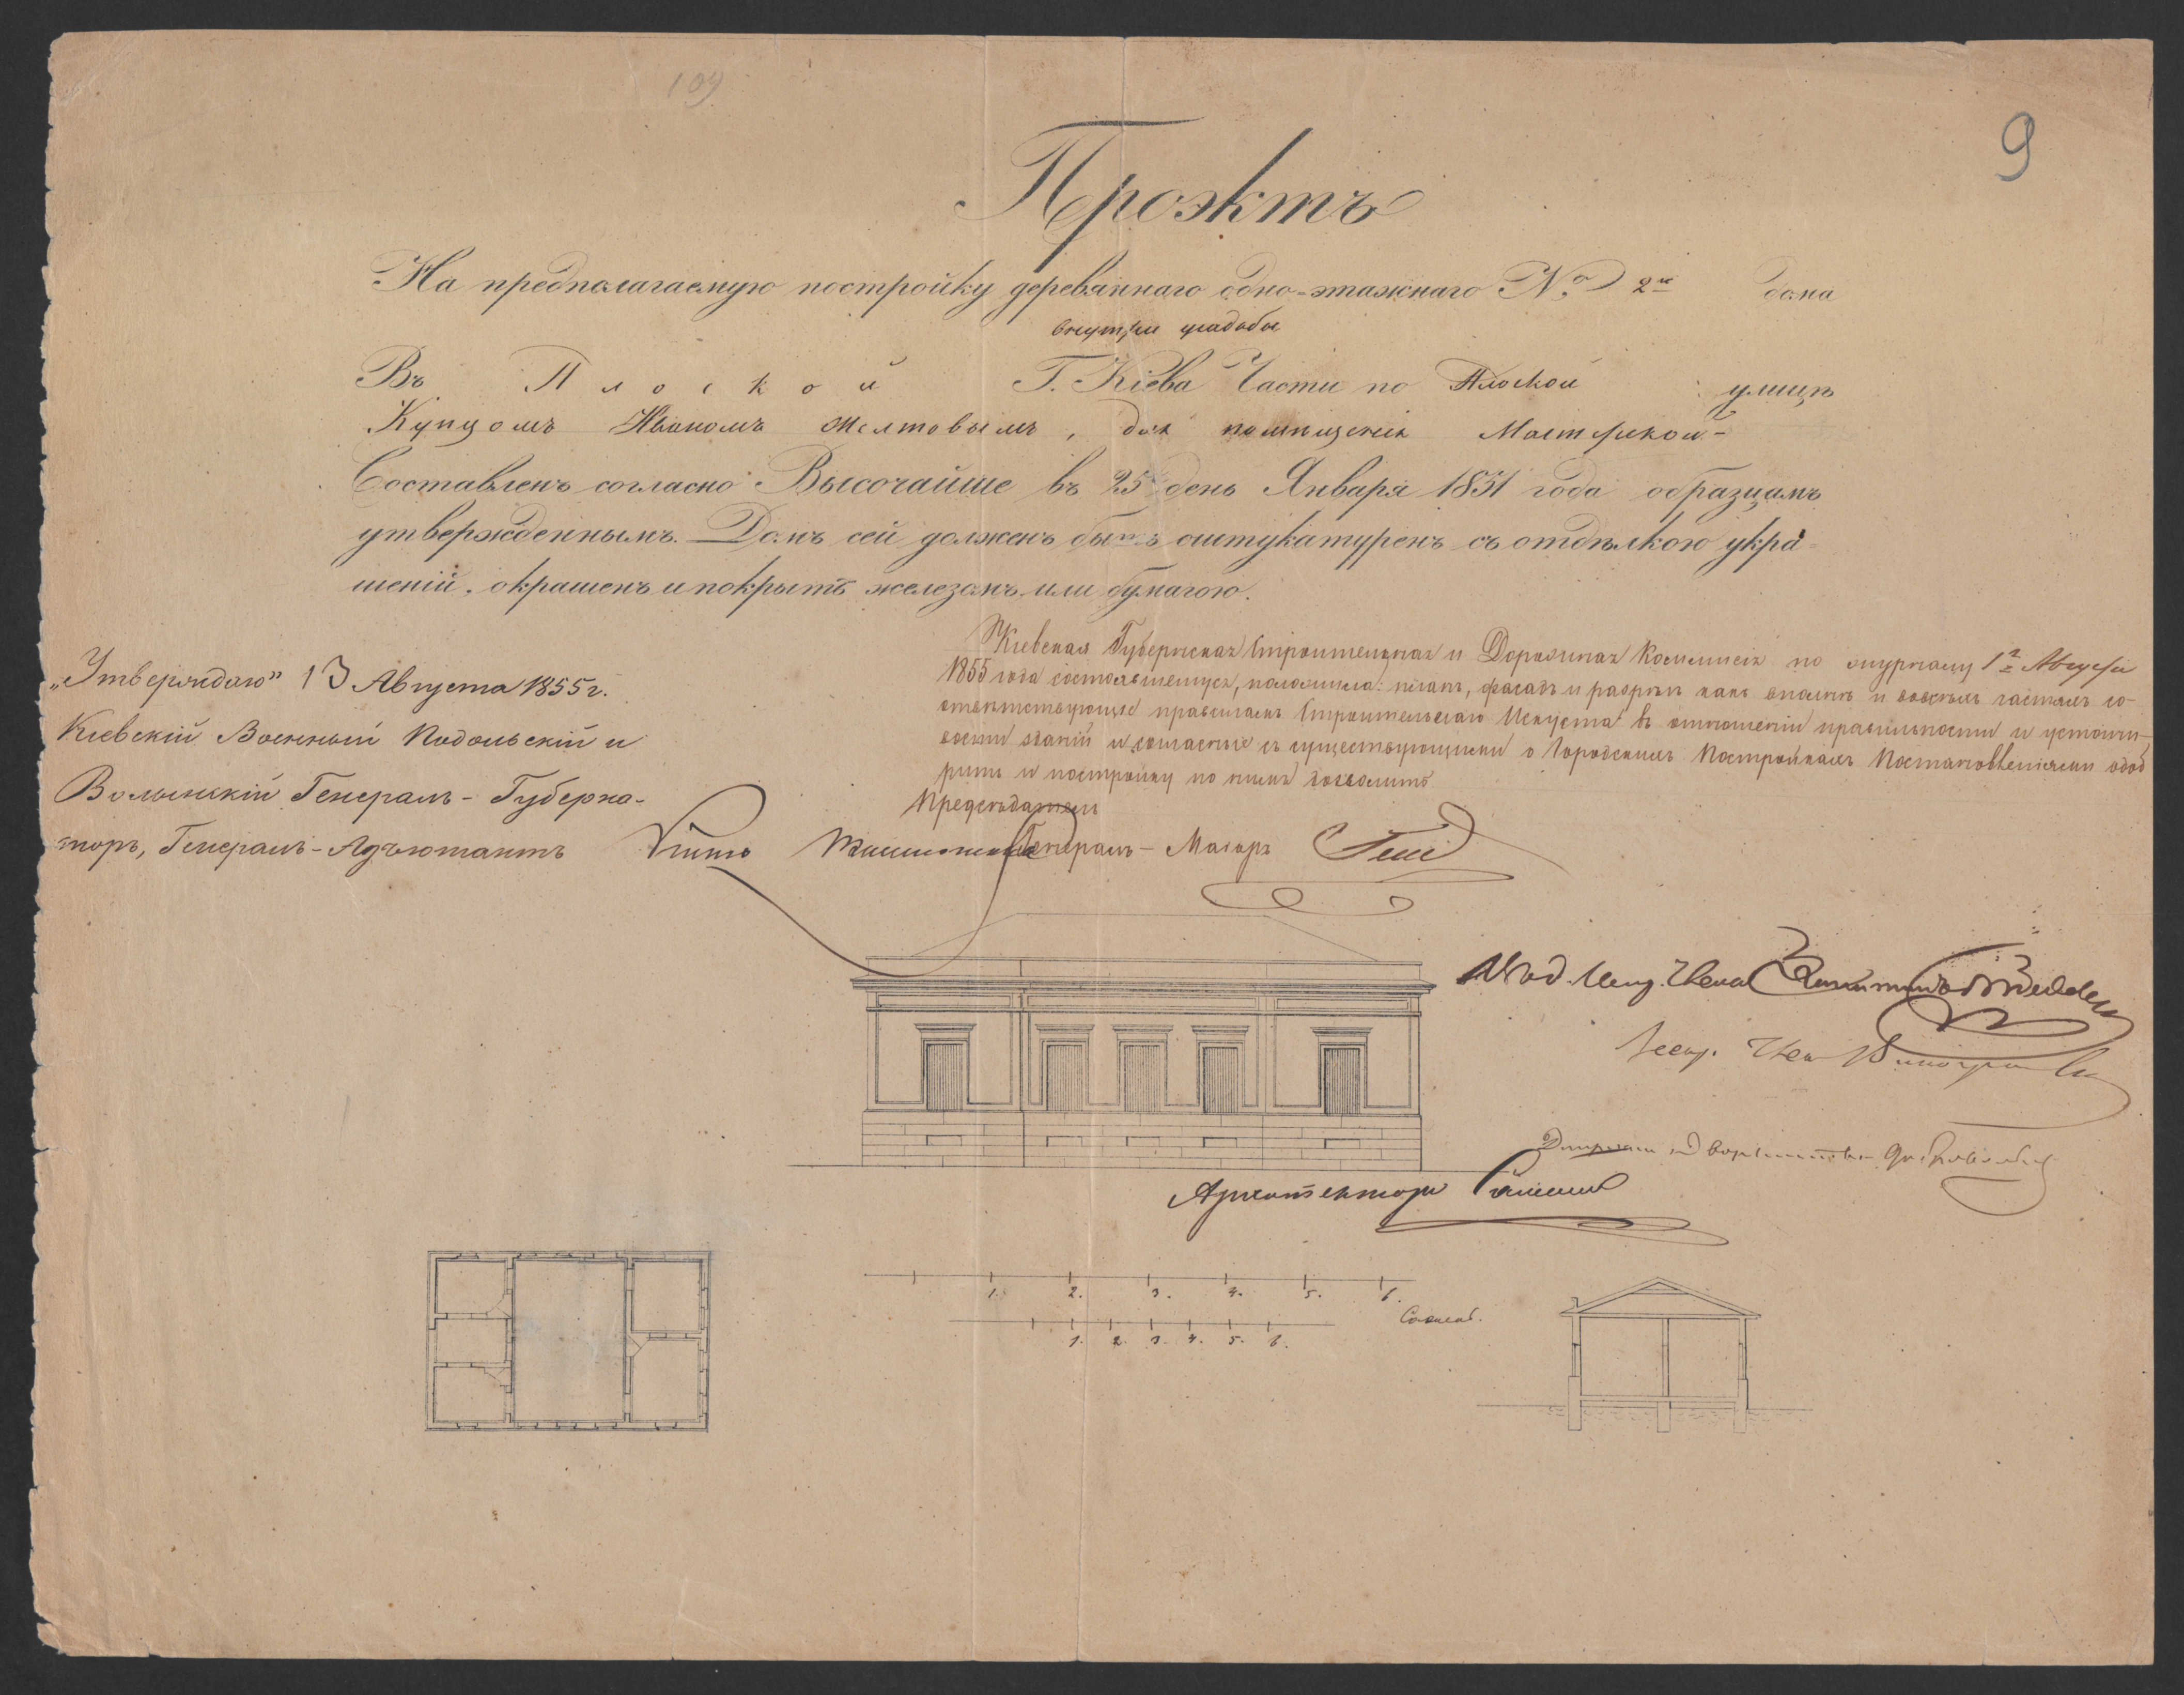 109
9
Проэктъ
На предполагаемую постройку деревяннаго одно-этажнаго № 2й дома
внутри усадьбы
Въ Плоской Г. Кіева Части по Плоской улицѣ
Купцомъ Иваномъ Желтовымъ, для помѣщенія Мастерской
Составленъ согласно Высочайше въ 25 день Января 1851 года образцамъ
утвержденнымъ. Домъ сей долженъ быть оштукатуренъ съ отдѣлкою укра
шеній, окрашенъ и покрытъ железомъ или бумагою.
„Утверждаю" 13 Августа 1855 г.
Кіевскій Военный Подольскій и
Волынскій Генералъ-Губерна-
торъ, Генералъ-Адъютантъ
Кіевская Губернская Строительная и Дорожная Коммисія по журналу 1го Августа
1855 года состоявшемуся, положила: планъ, фасадъ и разрѣзъ какъ вполнѣ и во всѣхъ частяхъ со-
отвѣтствующіе правиламъ Строительнаго Искуства въ отношеніи правильности и устойчи-
вости зданій и согласные съ существующими о Городскихъ Постройкахъ Постановленіями одоб
рить и постройку по нимъ дозволить
Предсѣдатель
Генералъ-Маіоръ
Архитекторъ
1. 2. 3. 4. 5. 6.
Сажень.
1. 2. 3. 4. 5. 6.